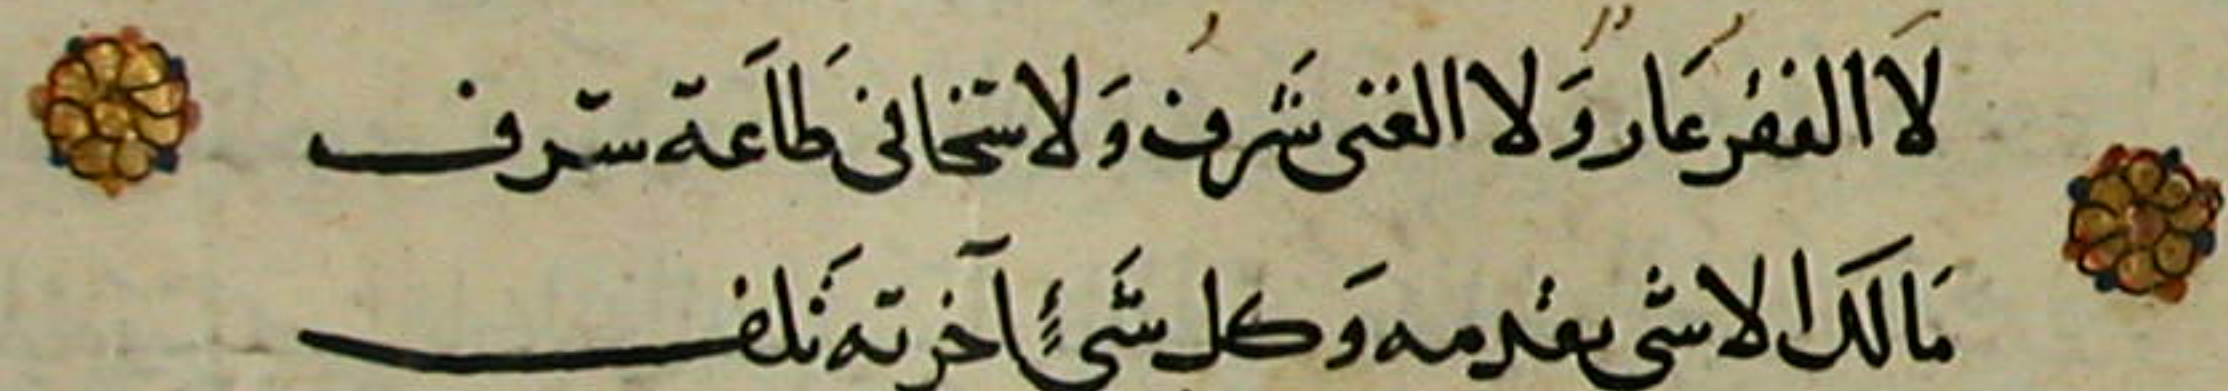 لَا الفقرُ عَارٌ وَلا الغنى شَرفُ وَلا سخا فى طَاعة سرف
مَالكَ الا شى تقدمه وَكل شَىءٍ آخرته تَلف